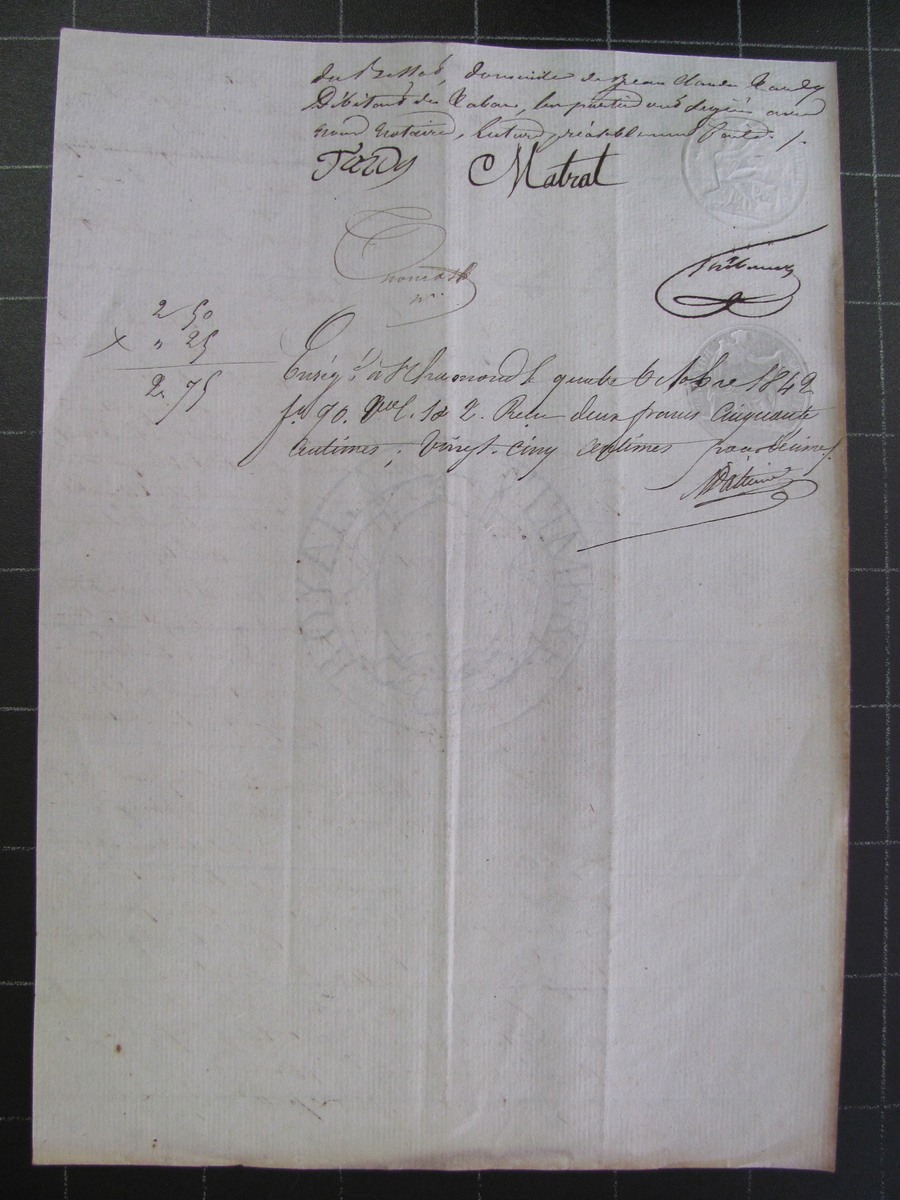 du Bessat, domicile de Jean Claude Tardy
Débitant de Tabac, les parties ont signé avec
nous notaires, lecture préalablement faite. /.
Tardy Matrat
2 50
" 25
2. 75
Enrég.t à St Chamond le quatre Octobre 1842
f.o 90. V.o C. 1 & 2. Reçu deux francs Cinquante
Centimes, Vingt-cinq centimes pour décime.
ROYAL TIMBRE